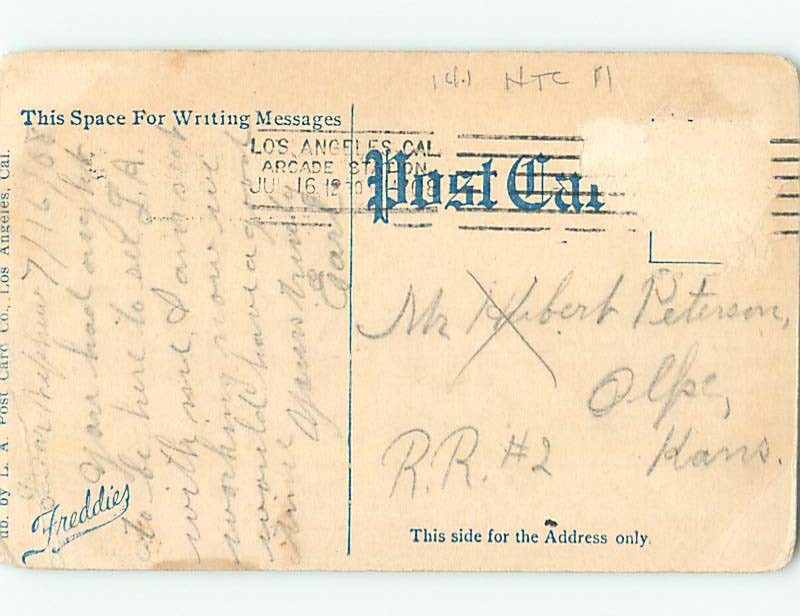 141 NTC
This Space For Writing Messages
LOS ANGELES, CAL.
ARCADE STATION
JUL 16 12 30
Post Car
7/16/08
Dear Nephew
You had ought
to be here to see L.A.
with me. I am not
working now we
would have a good
time
Yours truly
Earl
Mr Hubert Peterson,
Olpe,
R.R. #2 Kans.
This side for the Address only.
ub. by L. A. Post Card Co., Los Angeles, Cal.
Freddies